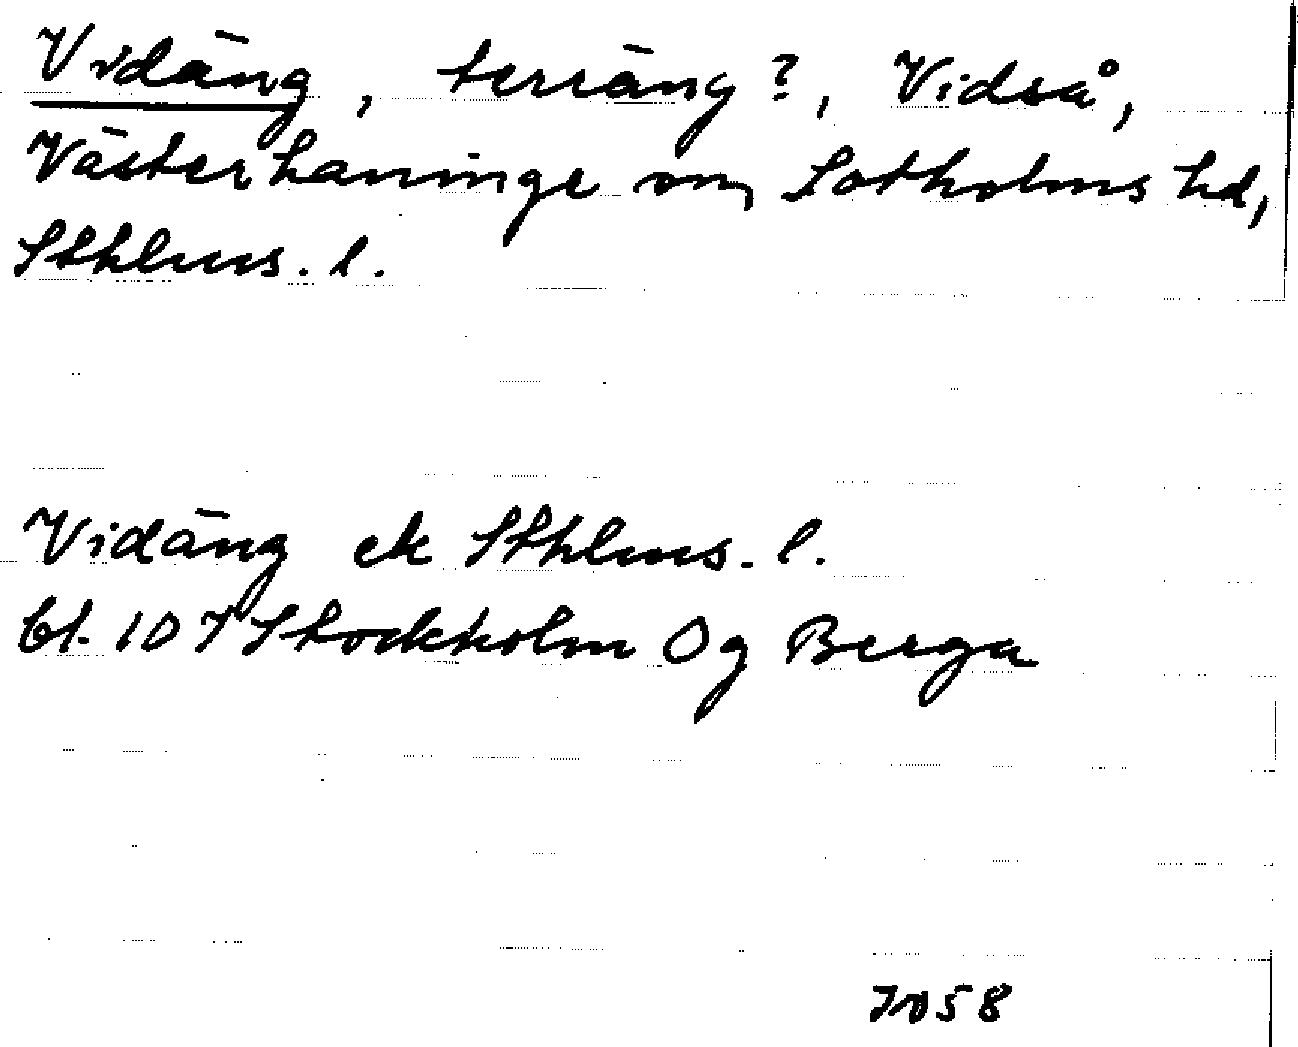 Vidäng, terräng?, Vidså,
Västerhaninge sn, Sotholms hd,
Sthlms. l.
Vidäng ek Sthlms. l.
bl. 107 Stockholm Og Berga
7058